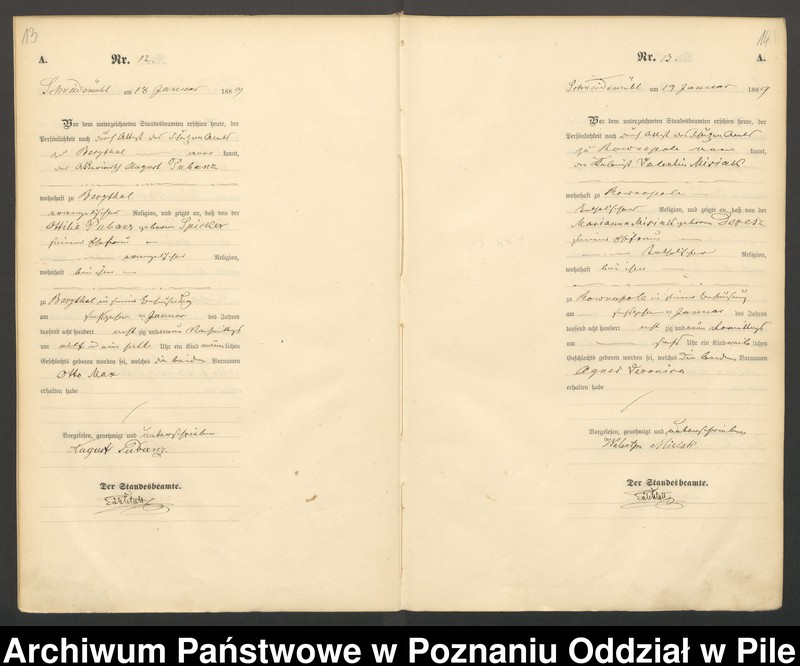 13
A.
Nr. 12.
Schneidemühl am 18 Januar 1889
Vor dem unterzeichneten Standesbeamten erschien heute, der
Persönlichkeit nach durch Attest des Schulzen Amts
zu Bergthal kannt,
der August Pubanz
wohnhaft zu Bergthal
evangelischer Religion, und zeigte an, daß von der
Ottilie Pubanz geborene Spicker
seiner Ehefrau
evangelischer Religion,
wohnhaft bei ihm
zu Bergthal in seiner Behausung
am Januar des Jahres
tausend acht hundert acht zig und neun Nachmittags
um elf und ein halb Uhr ein Kind männlichen
Geschlechts geboren worden sei, welches die beiden Vornamen
Otto Max
erhalten habe
Vorgelesen, genehmigt und unterschrieben
August Pubanz.
Der Standesbeamte.
14
Nr. 13.
A.
Schneidemühl am 19 Januar 1889
Vor dem unterzeichneten Standesbeamten erschien heute, der
Persönlichkeit nach durch Attest des Schulzen Amts
zu kannt,
der Valentin
wohnhaft zu
katholischer Religion, und zeigte an, daß von der
Marianna geborene
seiner Ehefrau
katholischer Religion,
wohnhaft bei ihm
zu in seiner Behausung
am Januar des Jahres
tausend acht hundert acht zig und neun Vormittags
um sechs Uhr ein Kind weiblichen
Geschlechts geboren worden sei, welches die beiden Vornamen
Agnes Veronica
erhalten habe
Vorgelesen, genehmigt und unterschrieben
Der Standesbeamte.
Archiwum Państwowe w Poznaniu Oddział w Pile